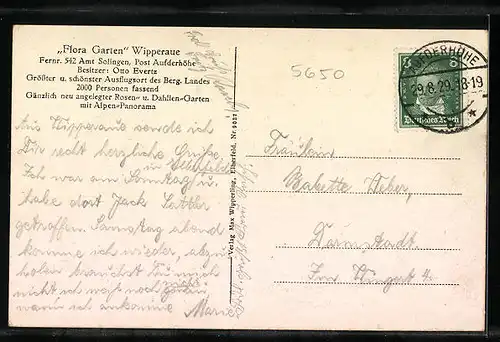 „Flora Garten“ Wipperaue
Fernr. 542 Amt Solingen, Post Aufderhöhe
Besitzer: Otto Evertz
Größter u. schönster Ausflugsort des Berg. Landes
2000 Personen fassend
Gänzlich neu angelegter Rosen- u. Dahlien-Garten
mit Alpen-Panorama
5650
AUFDERHÖHE
29.8.29.18-19
Deutsches Reich
Aus Wipperaue sende ich
Dir recht herzliche Grüße.
in Elberfeld
Ich war am Samstag u.
habe dort Jack
getroffen. Samstag abend
komme ich wieder,
holen brauchst Du mich
nicht ich weiß noch nicht
wann ich ankomme Marie
Verlag Max Wipperling, Elberfeld, Nr.
Fräulein
Babette Weber,
Darmstadt
Im 4